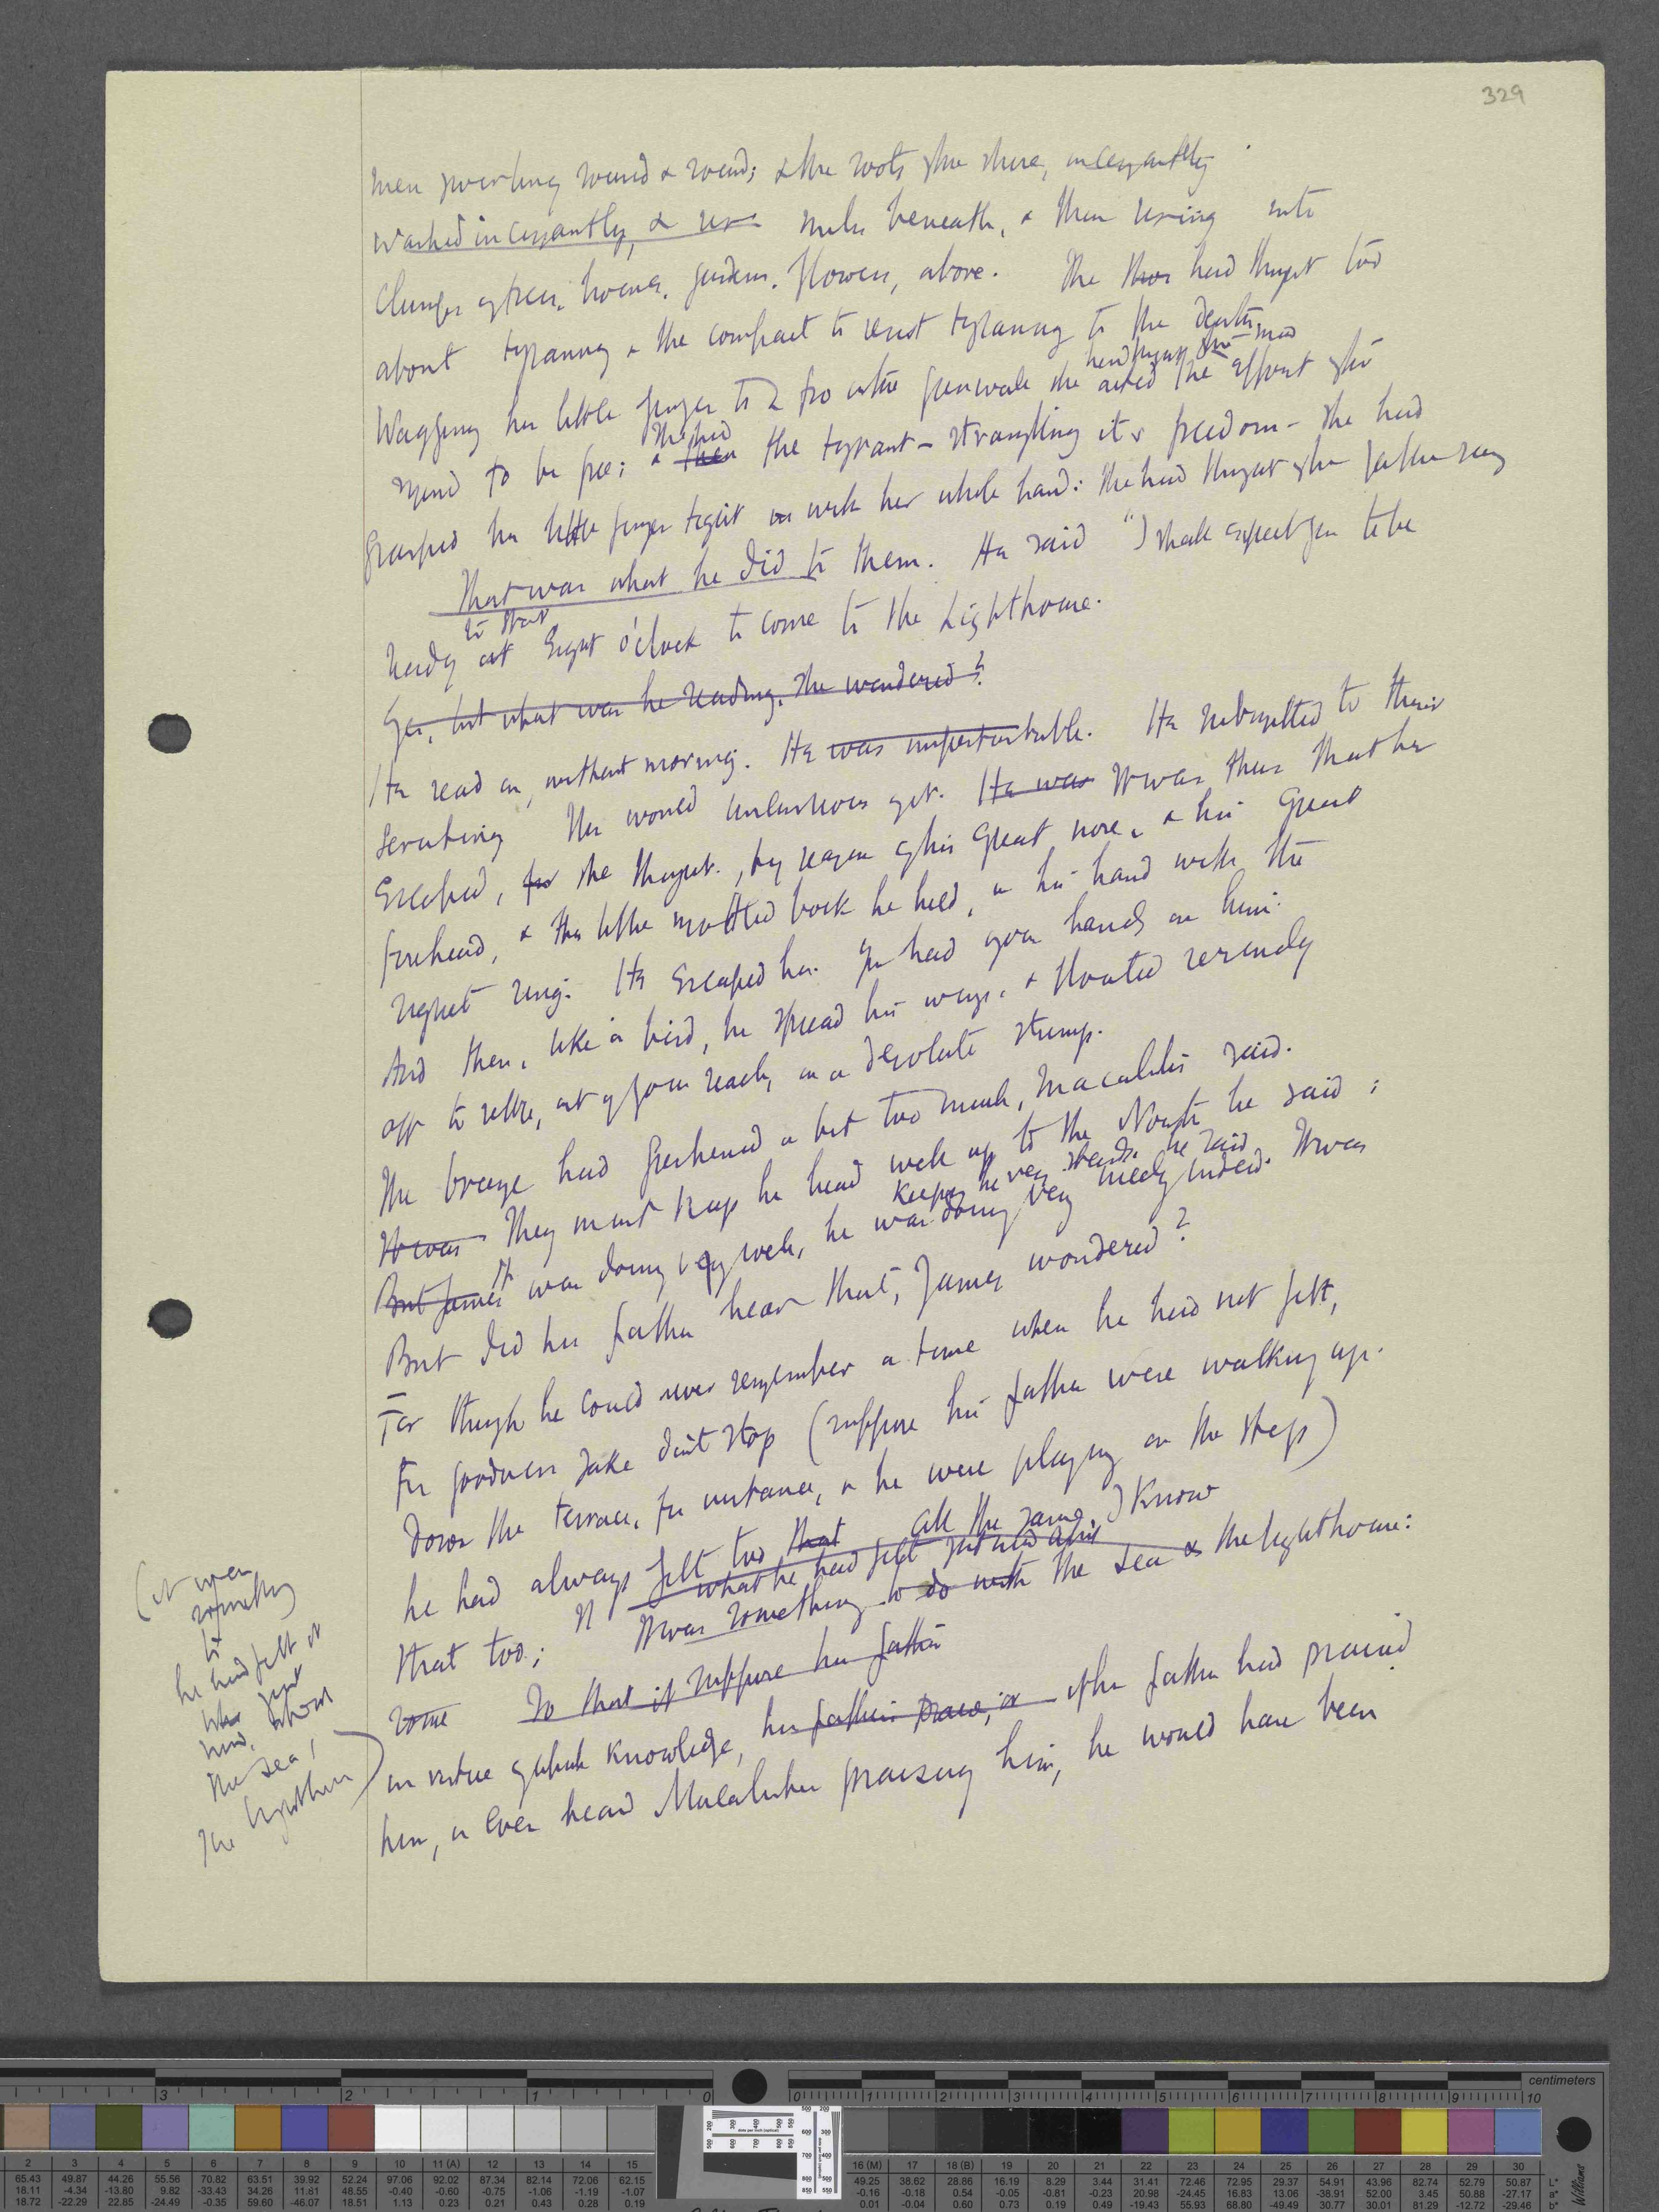 329
men swirling round & round; & the roots of the shore, incessantly
washed incessantly, & miles beneath, & then rising into
clumps of trees, houses, gardens, flowers, above. She had thought too
about tyranny & the compact to resist tyranny to the death,
Wagging her little finger to & fro in the gunwale she acted the effort of the
mind to be free; & she had then the tyrant - strangling its freedom - She had
grasped her little finger tight in with her whole hand: She had thought of her father saying
That was what he did to them. He said "I shall expect you to be
to start
ready at Eight o'clock to come to the Lighthouse.
Yes, but what was he reading, she wondered?
He read on, without moving. He was imperturbable. He submitted to their
scrutiny. He was It was thus that he
Escaped, for she thought., by reason of his Great nose, & his Great
forehead, & the little mottled book he held, in his hand with the
signet ring. He Escaped her. You had your hands on him.
And then, like a bird, he spread his wings, & floated serenely
off to settle, out of your reach, on a desolate stump.
The breeze had freshened a bit too much, Macalister said.
It was They must keep her head well up to the North he said;
keeping her very steady he said
But James It was doing very well, he was doing very nicely indeed. It was
But did his father hear that, James wondered?
For though he could never remember a time when he had not felt,
For goodness sake don't stop (suppose his father were walking up
down the terrace, for instance, & he were playing on the steps)
he had always felt too that all the same, I know
that too; what he had felt
It was something to do with the sea & the lighthouse:
some So that if suppose his father
in virtue of which knowledge, his father's praise, or if his father had praised
him, or Even heard Macalister praising him, he would have been
(it was
something
he had felt it
just
now, about
the sea,
the lighthouse)
centimeters